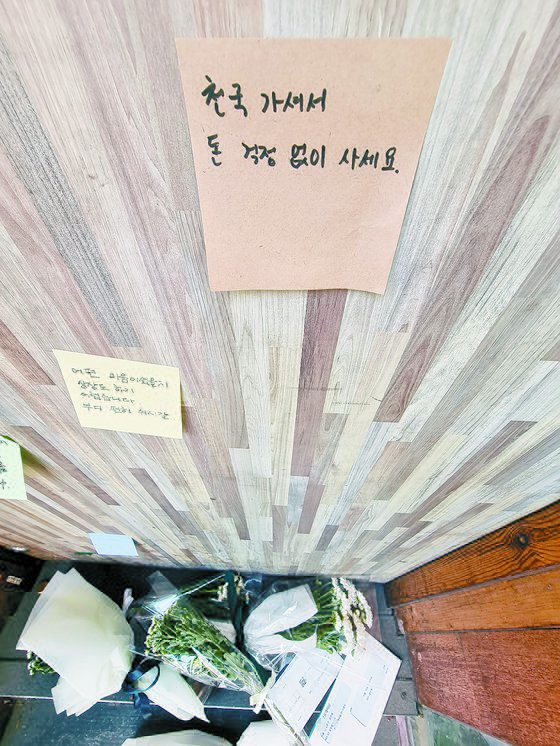 천국 가셔서
돈 걱정 없이 사세요.
어떤 마음이었을지
상상도 하기
어렵습니다
부디 편히 쉬시길